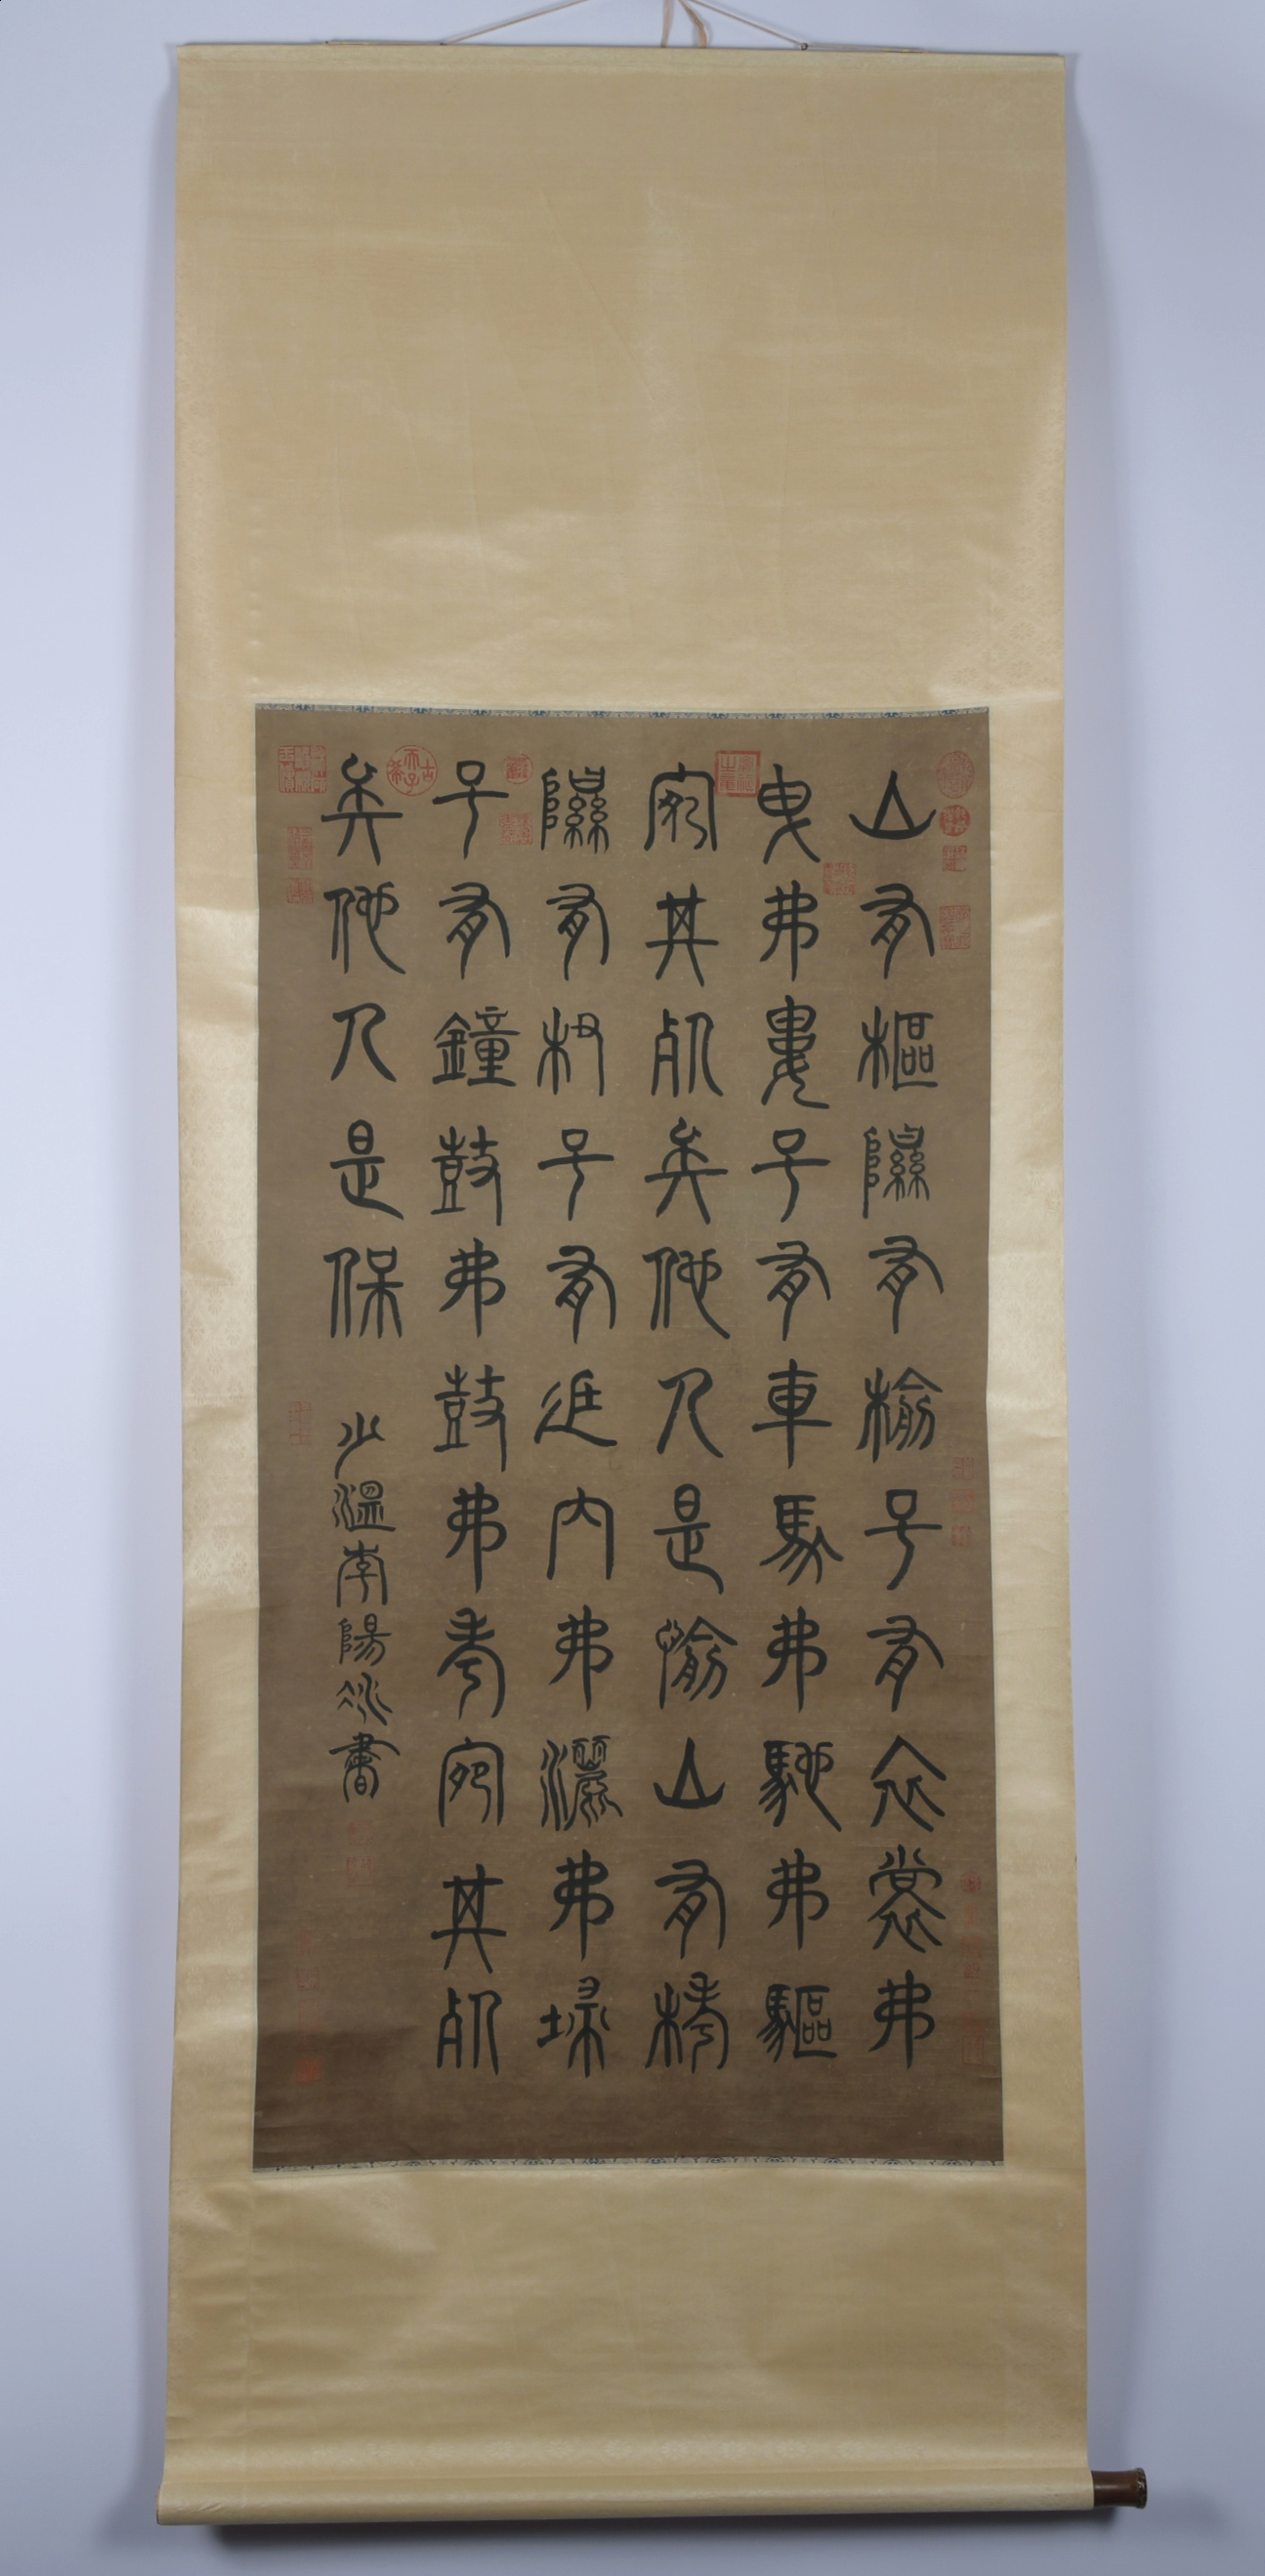 山有樞隰有榆子有衣裳弗
曳弗婁子有車馬弗馳弗驅
宛其死矣他人是愉山有栲
隰有杻子有廷內弗灑弗埽
子有鐘鼓弗鼓弗考宛其死
矣他人是保
少溫李陽冰書
古希天子